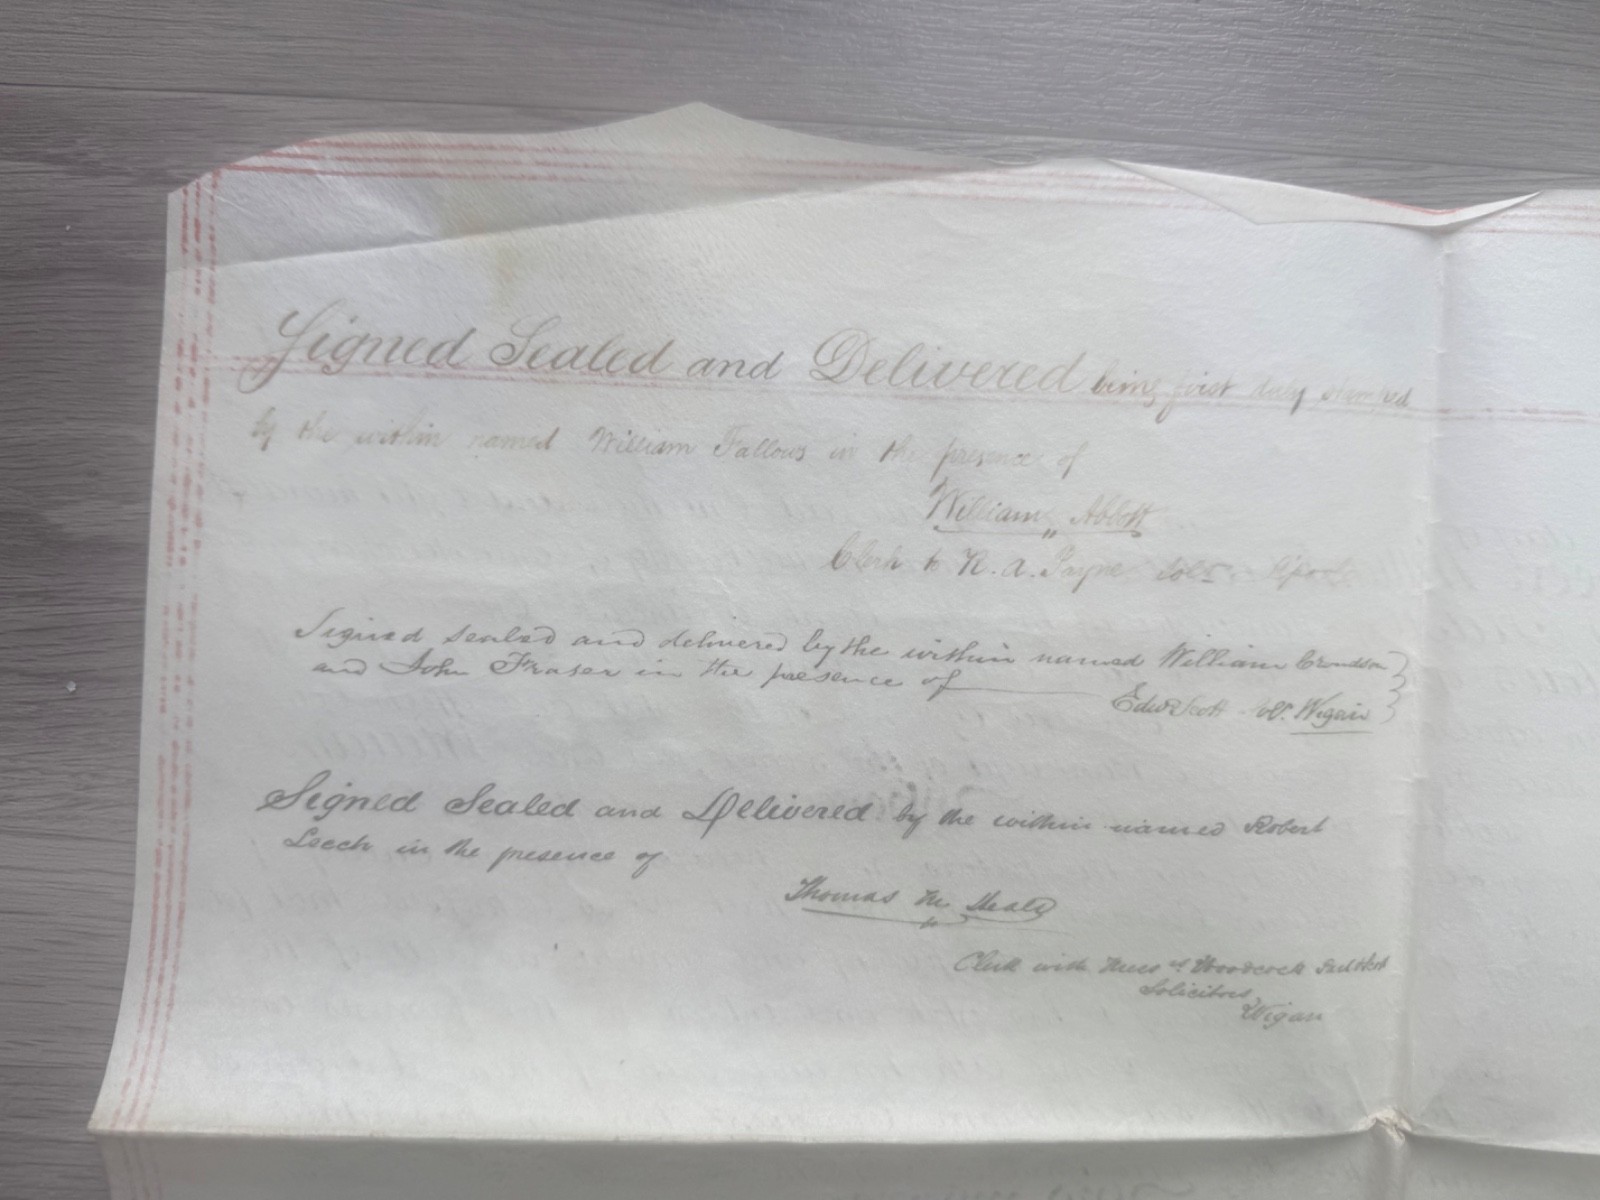 Signed Sealed and Delivered being first duly stamped
by the within named William Fallows in the presence of
William Abbott
Clerk to R. A. Payne Solr.
Signed sealed and delivered by the within named William
and John Fraser in the presence of
Edwd Scott Solr. Wigan
Signed Sealed and Delivered by the within named Robert
Leech in the presence of
Thomas
Clerk with Woodcock
Solicitors
Wigan